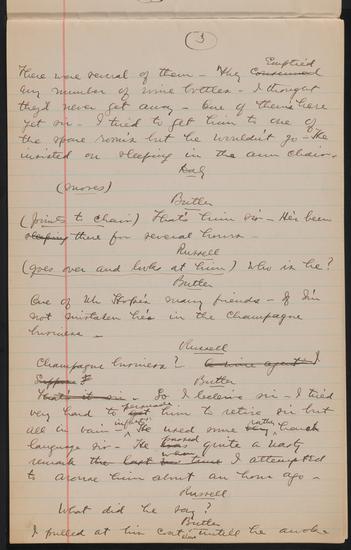 3
Emptied
There were several of them - They consumed
any number of wine bottles - I thought
they'd never get away - One of them's here
yet sir - I tried to get him to one of
the spare rooms but he wouldn't go - He
insisted on sleeping in the arm chair -
(moves)
Butler
(Points to chair) That's him sir - He's been
sleeping there for several hours -
Russell
(goes over and looks at him) Who is he?
Butler
One of Mr many friends - If I'm
not mistaken he's in the Champagne
business -
Russell
Champagne business? A wine agent I
suppose?
Butler
That's it sir - So I believe sir - I tried
persuade
very hard to get him to retire sir but
rather
all in vain - He used some very harsh
language sir - He passed quite a nasty
when
remark the last time I attempted
to arouse him about an hour ago -
Russell
What did he say?
Butler
I pulled at his coat until he awoke